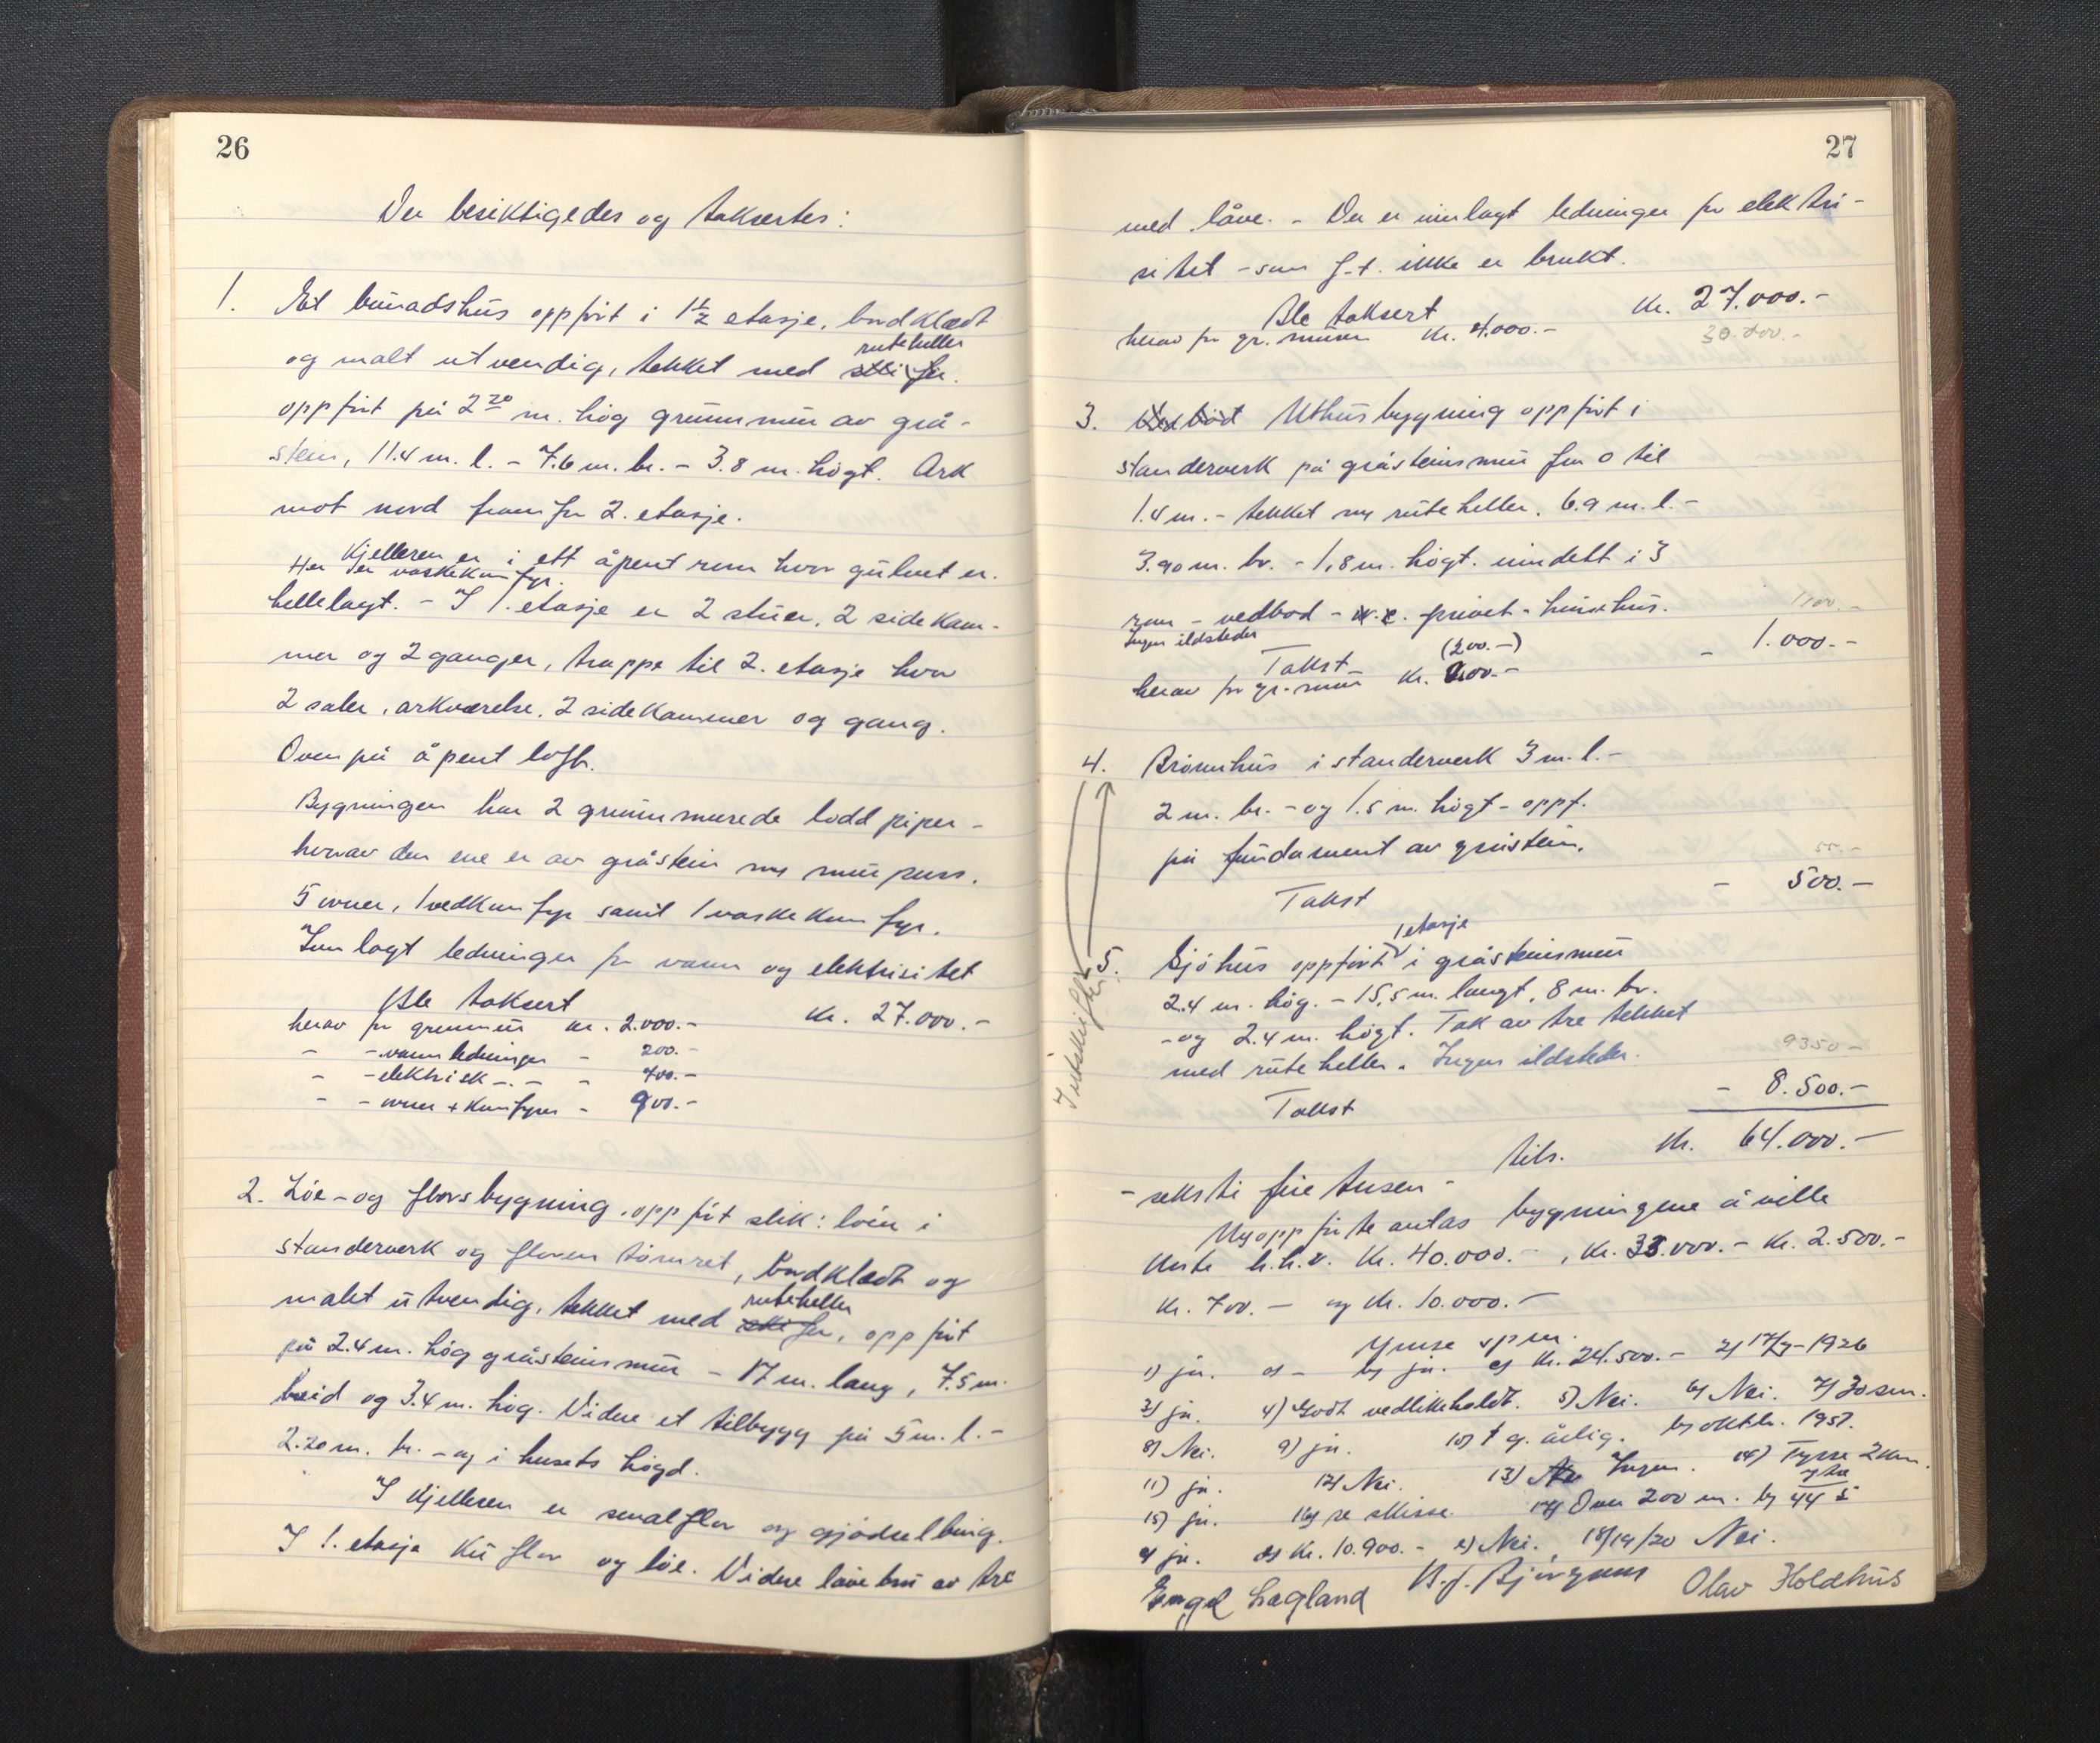 26
Der besiktigedes og taksertes:
1. Et búnadshús oppfört i 1½ etasje, bordklædt
ruteheller
og malt utvendig, tekket med skifer.
oppfört på 2²⁰ m. hög grunnmúr av grå-
stein, 11.4 m. l. - 7.6 m. br. - 3.8 m. högt. Ark
mot nord fram fra 2. etasje.
Kjelleren er i ett åpent rum hvor gúlvet er
Her er vaskekomfyr.
hellelagt. - I 1. etasje er 2 stúer, 2 sidekam-
mer og 2 ganger, trappe til 2. etasje hvor
2 saler, arkværelse, 2 sidekammer og gang.
Oven på åpent loft.
Bygningen har 2 grunnmurede lodd piper -
hvorav den ene er av gråstein m/ múrpuss.
5 ovner, 1 vedkomfyr samt 1 vaskekomfyr.
Innlagt ledninger for vann og elektrisitet
Ble taksert kr. 27.000.-
herav for grunnmúr kr. 2.000.-
- - vannledninger - 200.-
- - elektrisk -.- - 400.-
- - ovner + komfyrer - 900.-
2. Löe- og florsbygning, oppfört slik: löen i
standerverk og floren tömret, bordklædt og
ruteheller
malt útvendig, tekket med skifer, oppfört
på 2.4 m. hög gråsteinsmúr - 17 m. lang, 7.5 m.
breid og 3.4 m. hög. Videre et tilbygg på 5 m. l. -
2.20 m. br. - og i husets högd.
I Kjelleren er smalflor og gjödselbing.
I 1. etasje kúflor og löe. Videre låvebrú av tre
27
med låve. - Der er innlagt ledninger for elektri-
sitet - som f.t. ikke er brukt.
Ble taksert kr. 27.000.-
herav for gr. múren kr. 4.000.- 30.400.-
3. Uthúsbygning oppfört i
standerverk på gråsteinsmúr fra 0 til
1.4 m. - tekket m/ rúteheller. 6.9 m. l. -
3.90 m. br. - 1,8 m. högt. inndelt i 3
rom - vedbod - w.c. privet - hönsehús. 1100.-
Ingen ildsteder
Takst (200.-) - 1.000.-
herav for gr. múr kr. 200.-
4. Brönnhús i standerverk 3 m. l. -
2 m. br. - og 1.5 m. högt - oppf.
på fúndament av gråstein. 55.-
Takst - 500.-
1 etasje
5. Sjöhús oppfört i gråsteinsmúr
2.4 m. hög. - 15,5 m. langt, 8 m. br.
- og 2.4 m. högt. Tak av tre tekket
med rúteheller. Ingen ildsteder. 9350-
Takst - 8.500.-
tils. kr. 64.000.-
- seksti fire tusen -
Nyoppförte antas bygningene å ville
koste h.h.v. kr. 40.000.-, kr. 35.000.- kr. 2.500.-
kr. 700.- og kr. 10.000.-
Ymse spm.
1) ja. a) - b) ja. c) kr. 24.500.- 2) 17/7-1926
3) ja. 4) Godt vedlikeholdt. 5) Nei. 6) Nei. 7) 30 sm.
8) Nei. 9) ja. 10) 1 g. årlig. b) oktbr. 1957.
11) ja. 12) Nei. 13) Ingen. 14) Tysse 2 km.
15) ja. 16) se skisse. 17) Over 200 m. b) 44
c) ja. d) Kr. 10.900.- e) Nei. 18/19/20 Nei.
Engel Lægland Olav Holdhús